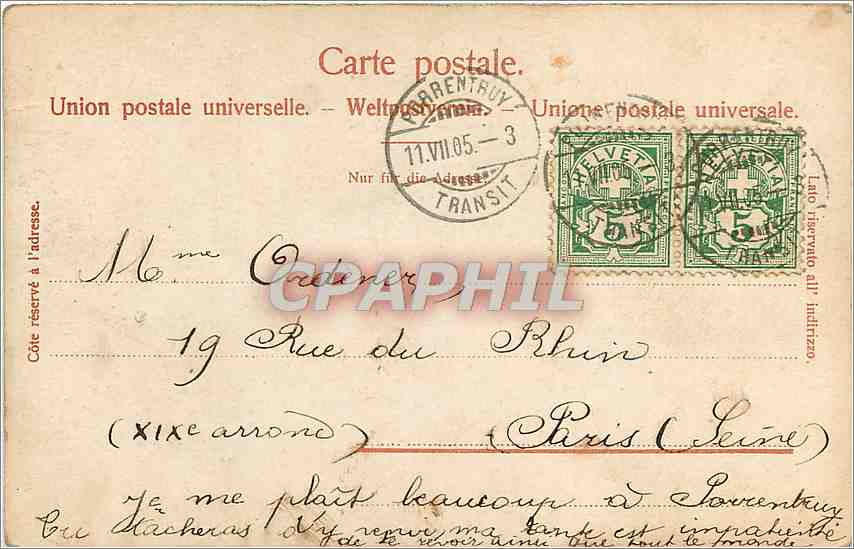 Carte postale.
Union postale universelle. – Weltpostverein. Unione postale universale.
PORRENTRUY
11.VII.05.– 3
TRANSIT
Nur für die Adresse.
HELVETIA HELVETIA
5 5
Côte réservé à l'adresse.
Lato riservato all' indirizzo.
CPAPHIL
Mme Ordener
19 Rue du Rhin
(XIXe arrond) Paris (Seine)
Je me plaît beaucoup à Porrentruy
tu tâcheras d'y venir ma tante est impatiente
de te revoir ainsi que tout le monde